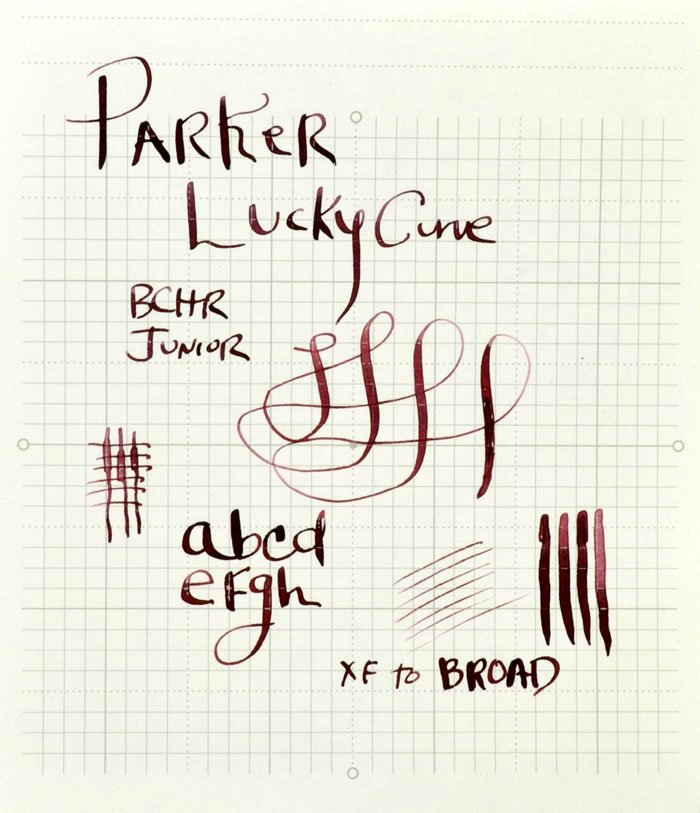 PARKER
Lucky Curve
BCHR
JUNIOR
abcd
efgh
XF to BROAD